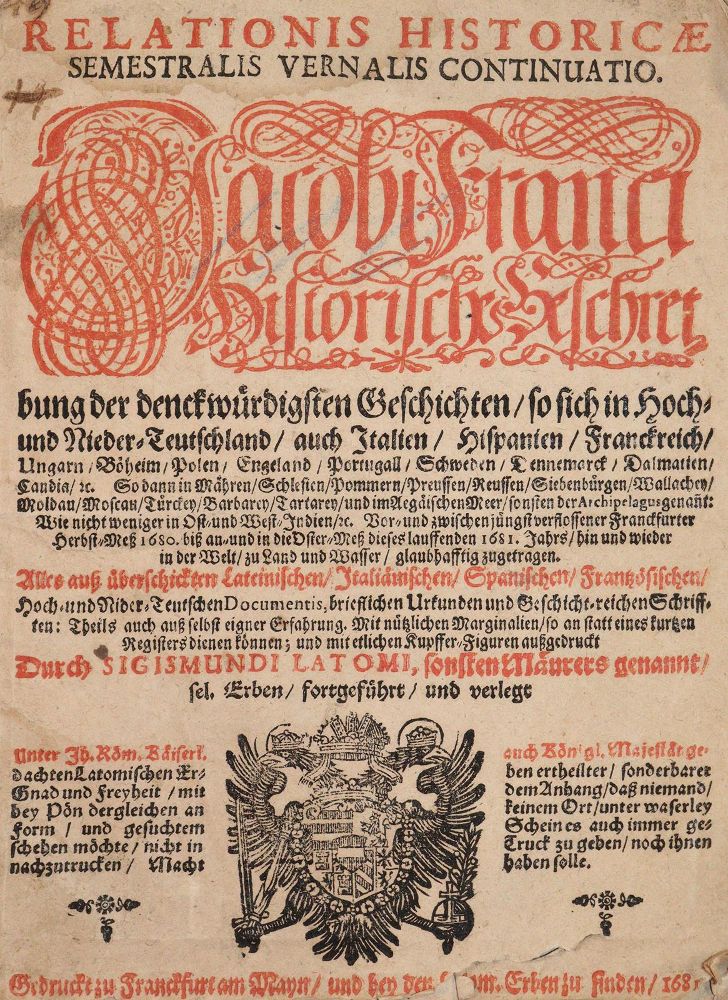 RELATIONIS HISTORICÆ
SEMESTRALIS VERNALIS CONTINUATIO.
Jacobi Franci
Historische Beschrei
bung der denckwürdigsten Geschichten / so sich in Hoch-
und Nieder-Teutschland / auch Italien / Hispanien / Franckreich /
Ungarn / Böheim / Polen / Engeland / Portugall / Schweden / Dennemarck / Dalmatien /
Candia / ꝛc. So dann in Mähren / Schlesien / Pommern / Preussen / Reussen / Siebenbürgen / Wallachey /
Moldau / Moscau / Türckey / Barbarey / Tartarey / und im Aegäischen Meer / sonsten der Archipelagus genant:
Wie nicht weniger in Ost- und West-Indien / ꝛc. Vor- und zwischen jüngst verflossener Franckfurter
Herbst-Meß 1680. biß an- und in die Oster-Meß dieses lauffenden 1681. Jahrs / hin und wieder
in der Welt / zu Land und Wasser / glaubhafftig zugetragen.
Alles auß überschickten Lateinischen / Italiänischen / Spanischen / Frantzösischen /
Hoch- und Nider-Teutschen Documentis, brieflichen Urkunden und Geschicht-reichen Schriff-
ten: Theils auch auß selbst eigner Erfahrung. Mit nützlichen Marginalien / so an statt eines kurtzen
Registers dienen können; und mit etlichen Kupffer-Figuren außgedruckt
Durch SIGISMUNDI LATOMI, sonsten Mäurers genannt /
sel. Erben / fortgeführt / und verlegt
Unter Ih. Röm. Käiserl.
dachten Latomischen Er-
Gnad und Freyheit / mit
bey Pön dergleichen an
Form / und gesuchtem
schehen möchte / nicht in
nachzutrucken / Macht
auch Königl. Majestät ge-
ben ertheilter / sonderbarer
dem Anhang / daß niemand /
keinem Ort / unter waserley
Schein es auch immer ge-
Truck zu geben / noch ihnen
haben solle.
Gedruckt zu Franckfurt am Mayn / und bey den Erben zu finden /